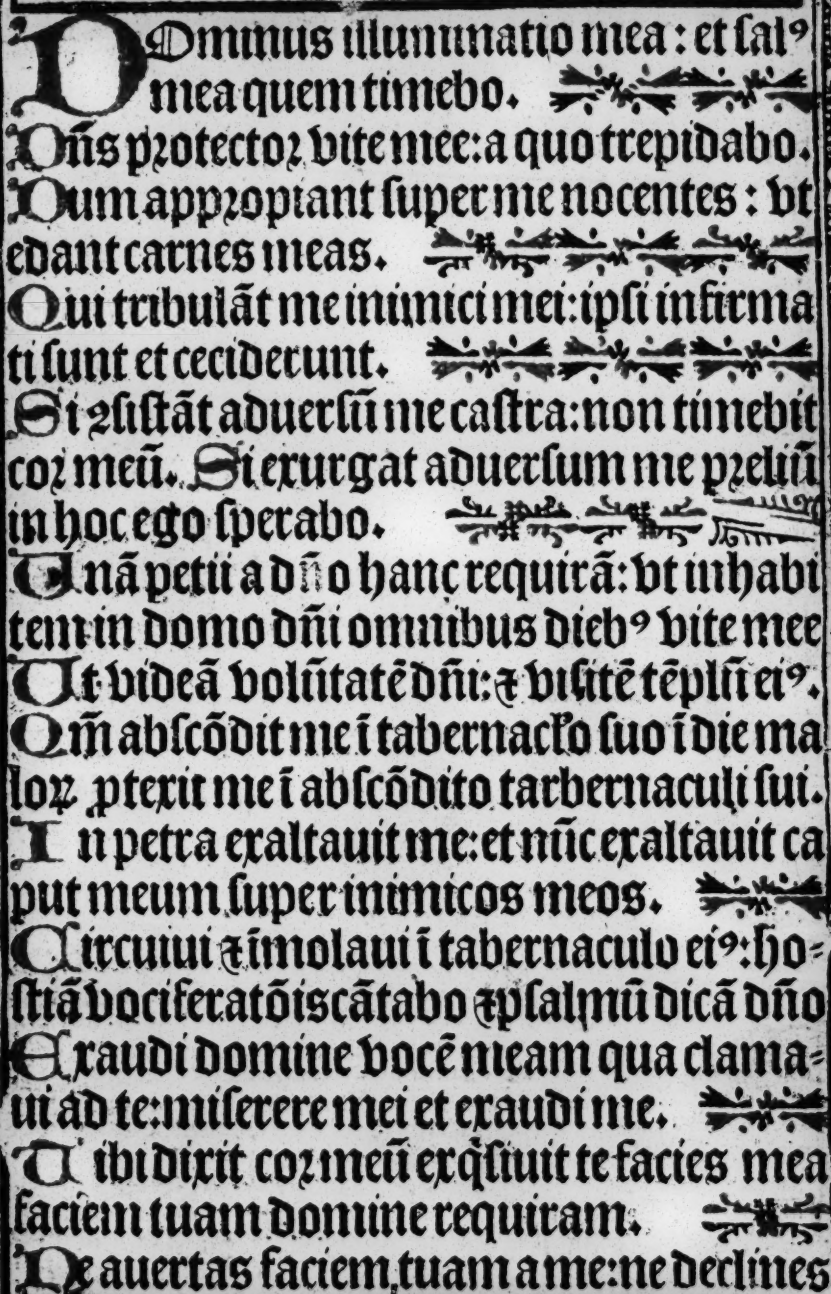 DOminus illuminatio mea: et salꝰ
mea quem timebo.
Dn̄s ꝓtector vite mee: a quo trepidabo.
Dum appropiant super me nocentes: vt
edant carnes meas.
Qui tribulāt me inimici mei: ipsi infirma
ti sunt et ceciderunt.
Si ꝯsistāt aduersū me castra: non timebit
cor meū. Si exurgat aduersum me preliū
in hoc ego sperabo.
Unā petii a dn̄o hanc requirā: vt inhabi
tem in domo dn̄i omnibus diebꝰ vite mee
Ut videā volūtatē dn̄i: ⁊ visitē tēplū eiꝰ.
Qm̄ abscōdit me ī tabernacl̓o suo ī die ma
loꝝ ꝓtexit me ī abscōdito tarbernaculi sui.
In petra exaltauit me: et nūc exaltauit ca
put meum super inimicos meos.
Circuiui ⁊ īmolaui ī tabernaculo eiꝰ: ho⸗
stiā vociferatōis cātabo ⁊ psalmū dicā dn̄o
Exaudi domine vocē meam qua clama⸗
ui ad te: miserere mei et exaudi me.
Tibi dixit cor meū exq̄siuit te facies mea
faciem tuam domine requiram.
Ne auertas faciem tuam a me: ne declines